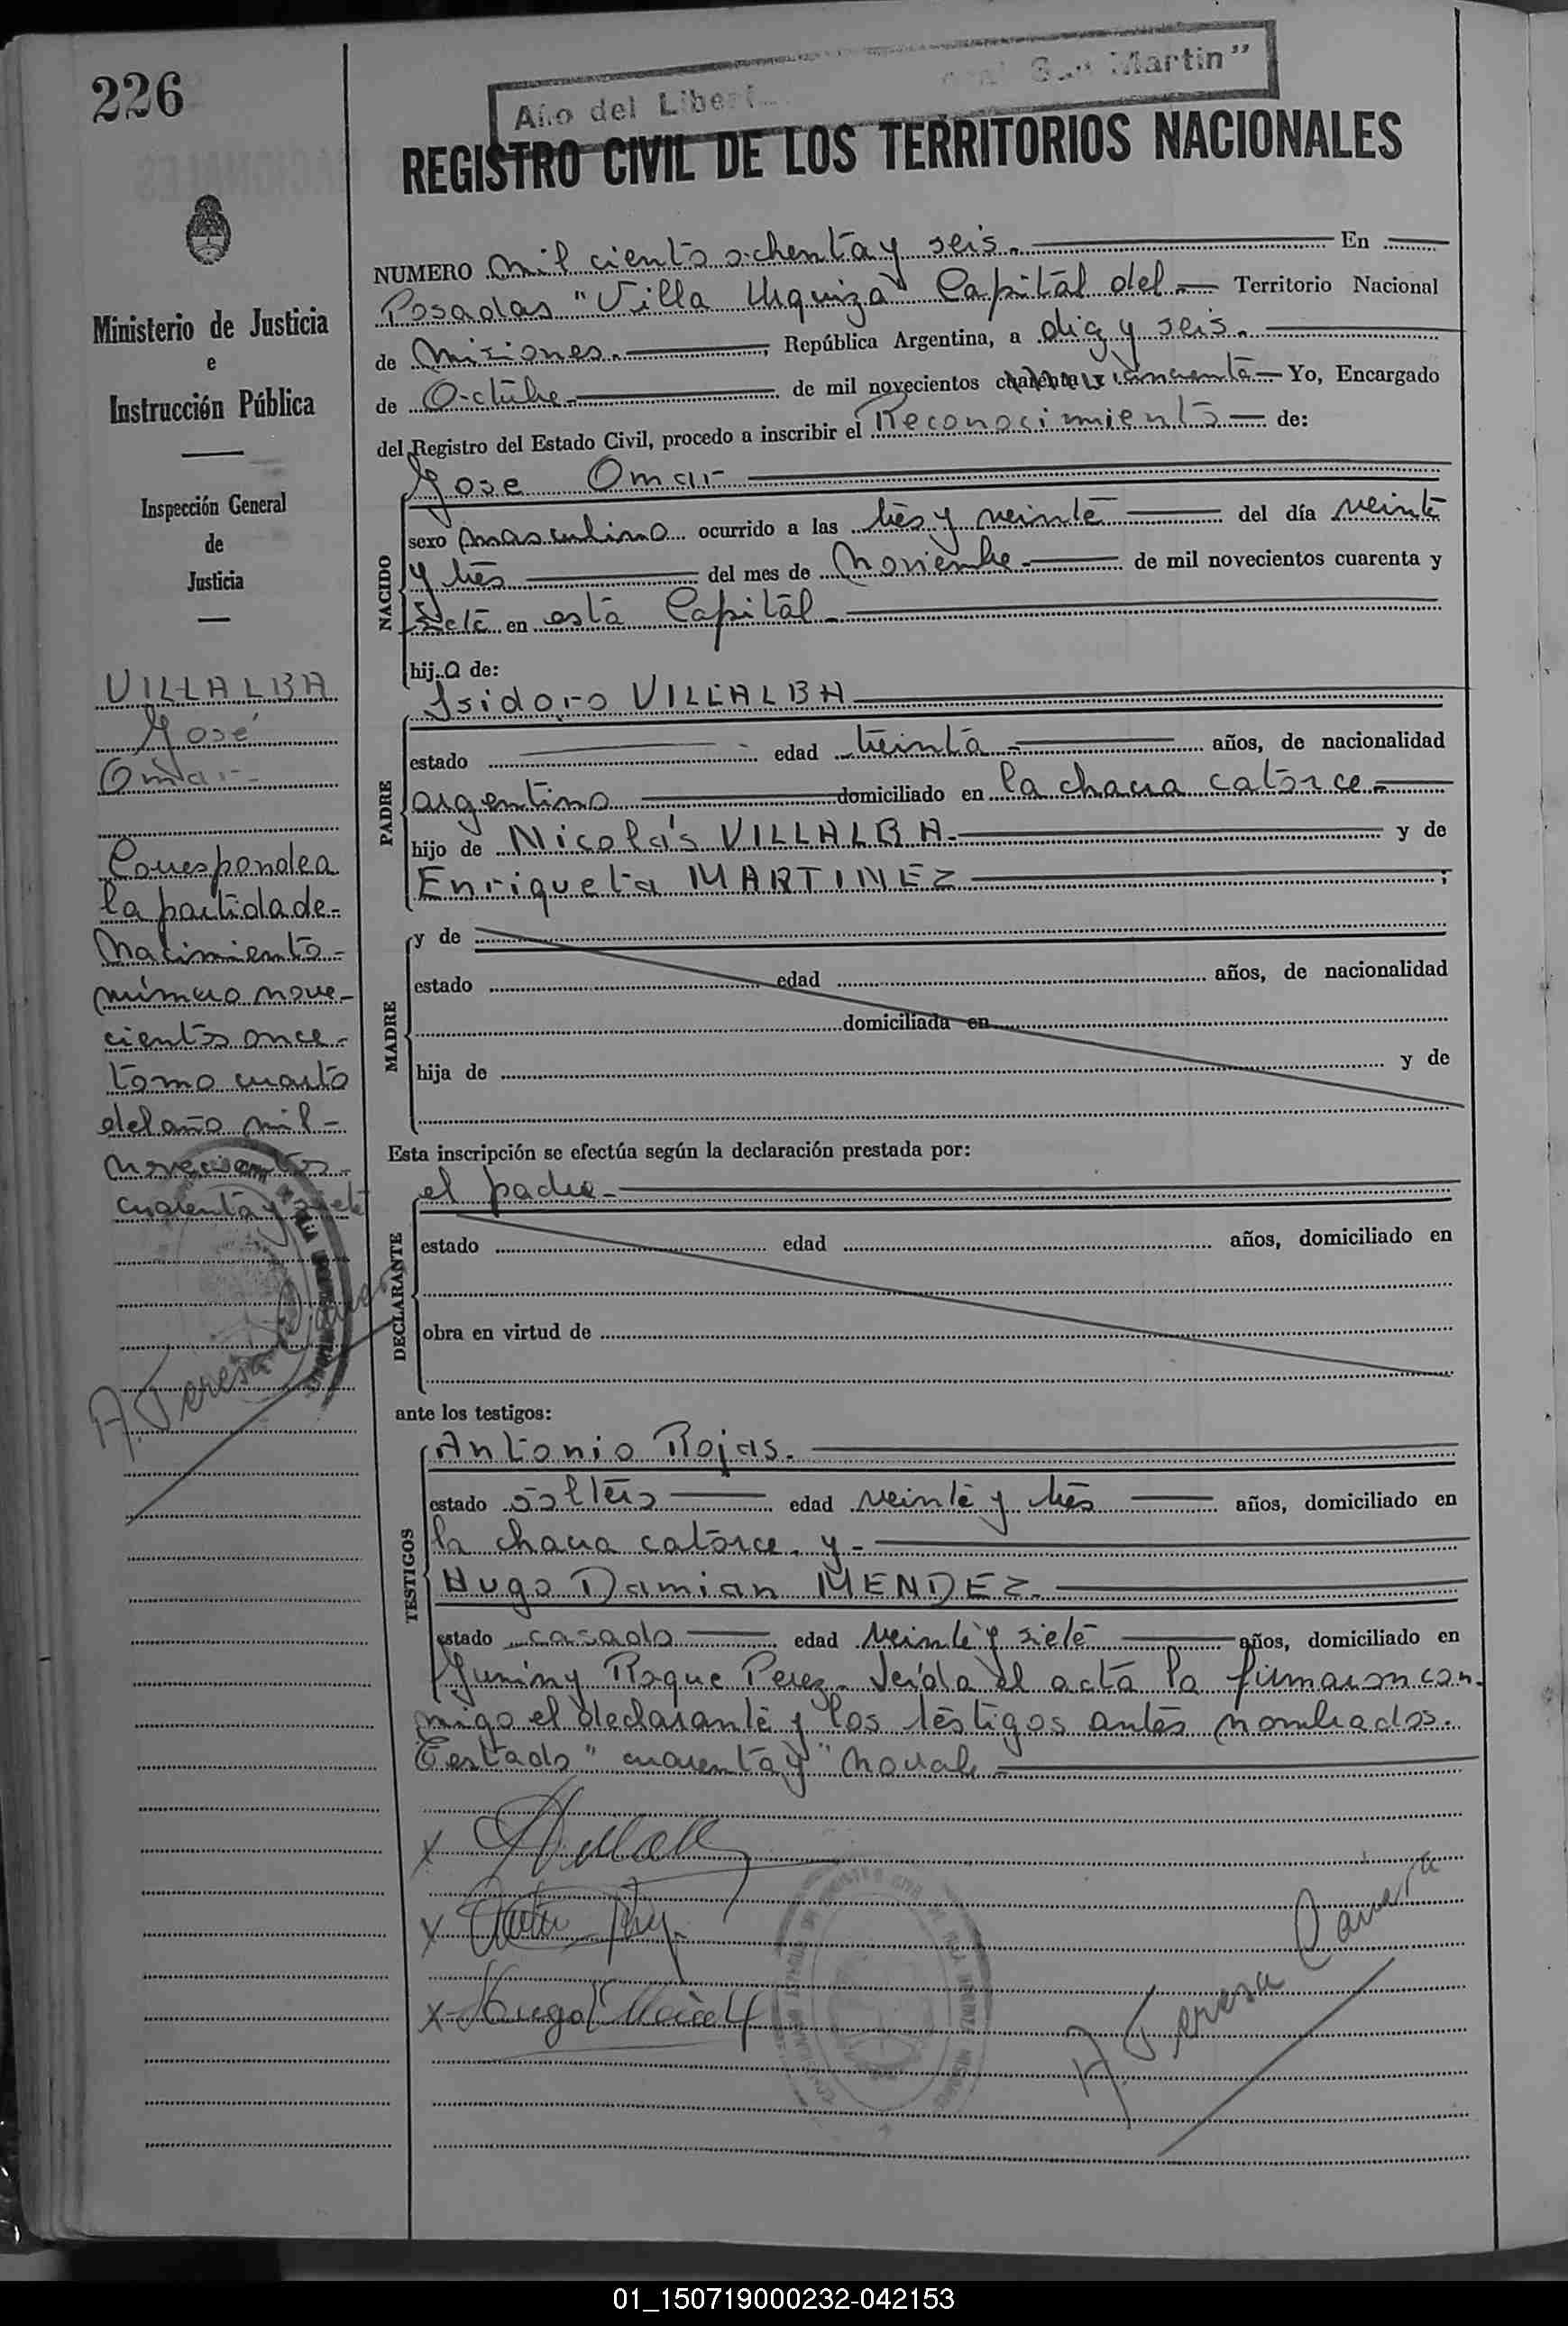 226
Año del Libert San Martin"
REGISTRO CIVIL DE LOS TERRITORIOS NACIONALES
Ministerio de Justicia
e
Instrucción Pública
Inspección General
de
Justicia
VILLALBA
José
Omar-
Corresponde a
la partida de-
Nacimiento-
número nove-
cientos once-
tomo cuarto
del año mil-
novecientos-
cuarenta y siete
A. Teresa
NUMERO mil ciento ochenta y seis.- En
Posadas "Villa Urquiza" Capital del- Territorio Nacional
de Misiones.- , República Argentina, a diez y seis.-
de Octubre- de mil novecientos cuarenta y cincuenta- Yo, Encargado
del Registro del Estado Civil, procedo a inscribir el Reconocimiento- de:
NACIDO
Jose Omar-
sexo masculino ocurrido a las tres y veinte- del día veinte
y tres- del mes de Noviembre- de mil novecientos cuarenta y
siete en esta Capital-
hijo de:
PADRE
Isidoro VILLALBA-
estado - edad treinta- años, de nacionalidad
argentino- domiciliado en la chacra catorce-
hijo de Nicolás VILLALBA- y de
Enriqueta MARTINEZ- ;
MADRE
y de
estado edad años, de nacionalidad
domiciliada en
hija de y de
Esta inscripción se efectúa según la declaración prestada por:
DECLARANTE
el padre-
estado edad años, domiciliado en
obra en virtud de
ante los testigos:
TESTIGOS
Antonio Rojas.-
estado soltero- edad veinte y tres- años, domiciliado en
la chacra catorce. y-
Hugo Damian MENDEZ-
estado casado- edad veinte y siete- años, domiciliado en
Junin y Roque Perez- Leída el acta la firmaron con-
migo el declarante y los testigos antes nombrados.
Testado "cuarenta y" no vale-
x
x
x Hugo
A Teresa
01_150719000232-042153